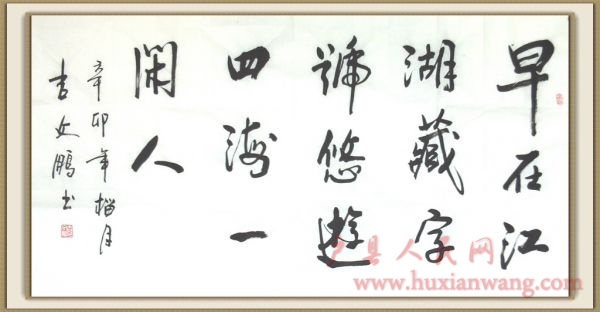 早在江
湖藏字
號悠遊
四海一
閑人
辛卯年榴月
吉文鵬书
户县人民网
www.huxianwang.com